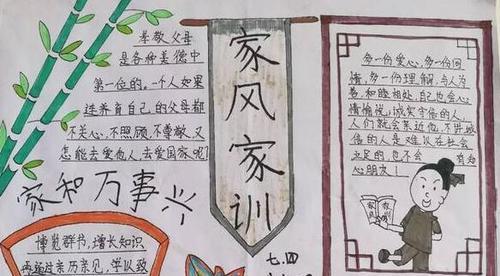 孝敬父母
是各种美德中
第一位的。一个人如果
连养育自己的父母都
不关心,不照顾,不尊敬,又
怎能去爱他人,去爱国家呢?
家和万事兴
博览群书,增长知识
再通过亲历亲见,学以致
家风家训
七.四
多一份爱心,多一份同
情,多一份理解,与人为
善,和睦相处,自己也会心
情愉悦,诚实守信的人,
人们就会亲近他,不讲诚
信的人是难以在社会
立足的,也不会 有知
心朋友!